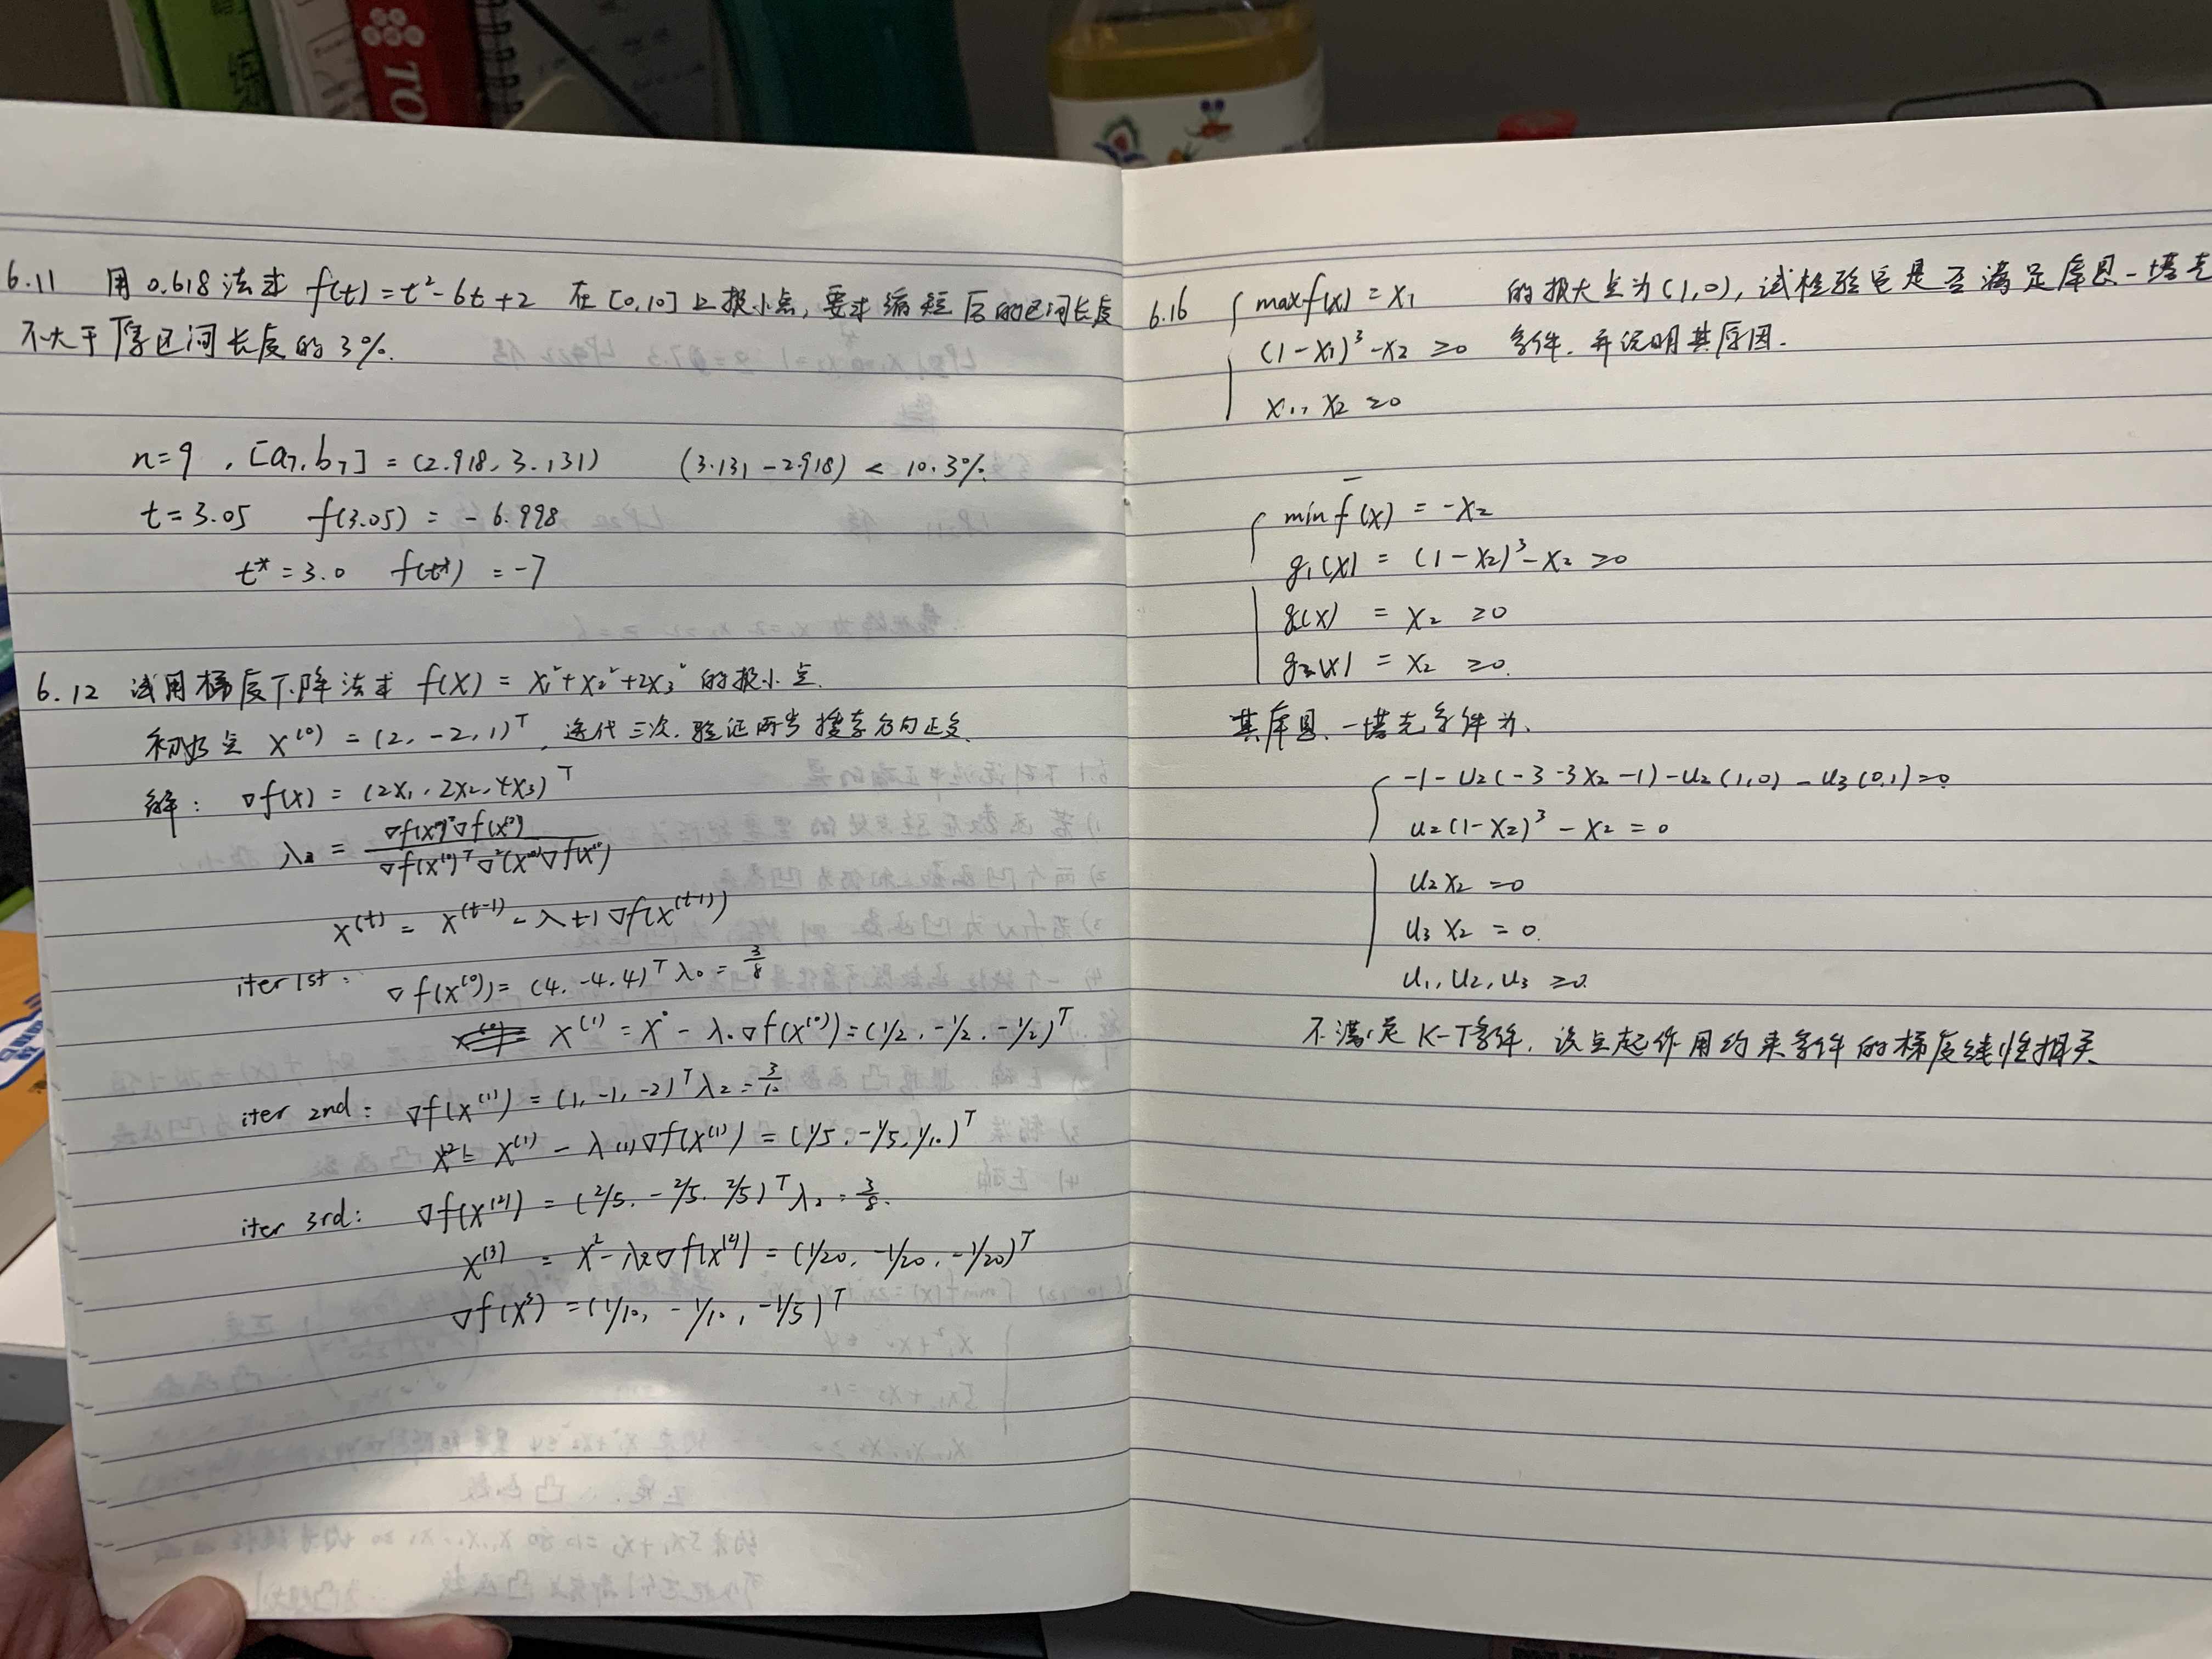 TO
6.11 用 0.618 法求 f(t) = t² - 6t + 2 在 [0,10] 上极小点, 要求缩短后的区间长度
不大于原区间长度的 3%.
n=9 , [a₇, b₇] = (2.918, 3.131) (3.131 - 2.918) < 10.3%
t = 3.05 f(3.05) = - 6.998
t* = 3.0 f(t*) = -7
6.12 试用梯度下降法求 f(X) = x₁² + x₂² + 2x₃² 的极小点.
初始点 X⁽⁰⁾ = (2, -2, 1)ᵀ, 迭代三次, 验证两步搜索方向正交.
解: ∇f(X) = (2x₁, 2x₂, 4x₃)ᵀ
X⁽ᵗ⁾ = X⁽ᵗ⁻¹⁾ - λt-1 ∇f(X⁽ᵗ⁻¹⁾)
iter 1st: ∇f(X⁽⁰⁾) = (4, -4, 4)ᵀ λ₀ = 3/8
X⁽¹⁾ = X⁰ - λ₀∇f(X⁽⁰⁾) = (1/2, -1/2, -1/2)ᵀ
iter 2nd: ∇f(X⁽¹⁾) = (1, -1, -2)ᵀ λ₂ = 3/10
X² = X⁽¹⁾ - λ₍₁₎∇f(X⁽¹⁾) = (1/5, -1/5, 1/10)ᵀ
iter 3rd: ∇f(X⁽²⁾) = (2/5, -2/5, 2/5)ᵀ λ₂ = 3/8.
X⁽³⁾ = X² - λ₂∇f(X⁽²⁾) = (1/20, -1/20, -1/20)ᵀ
∇f(X³) = (1/10, -1/10, -1/5)ᵀ
6.16 max f(x) = x₁ 的极大点为 (1,0), 试检验它是否满足库恩-塔克
(1-x₁)³ - x₂ ≥0 条件, 并说明其原因.
x₁, x₂ ≥0
min f̄(X) = -x₂
g₁(X) = (1-x₂)³ - x₂ ≥0
g₂(X) = x₂ ≥0
g₃(X) = x₂ ≥0.
其库恩-塔克条件为.
-1 - u₂(-3-3x₂-1) - u₂(1,0) - u₃(0,1) = 0
u₂(1-x₂)³ - x₂ = 0
u₂x₂ = 0
u₃x₂ = 0.
u₁, u₂, u₃ ≥0.
不满足 K-T条件, 该点起作用约束条件的梯度线性相关